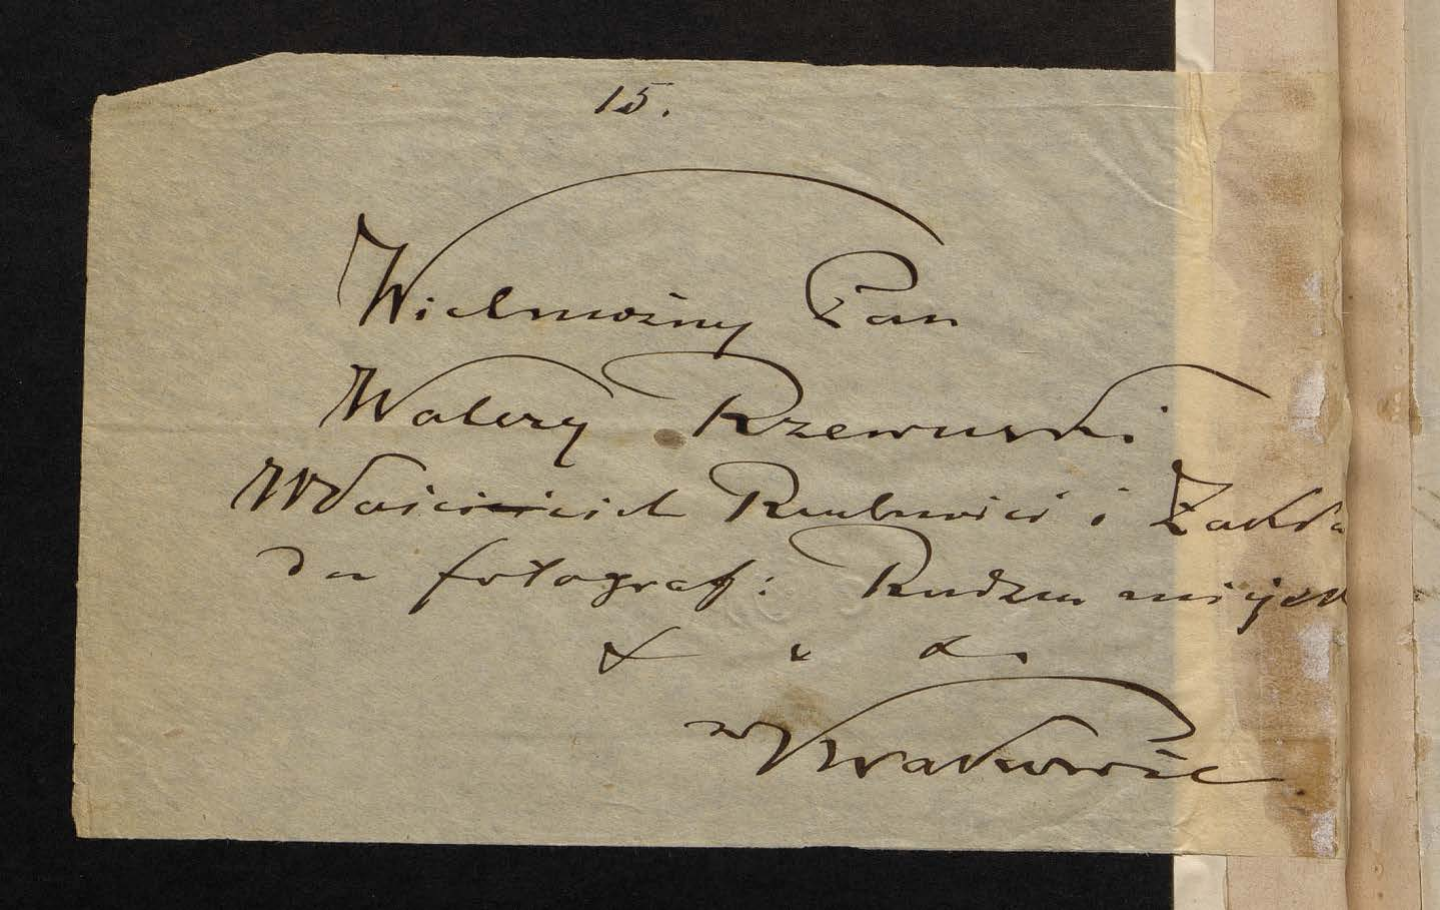 15.
Wielmożny Pan
Walery Rzewuski
Właściciel Realności i Zakła
du fotograf: Radzca miejsk
& & &
w Krakowie